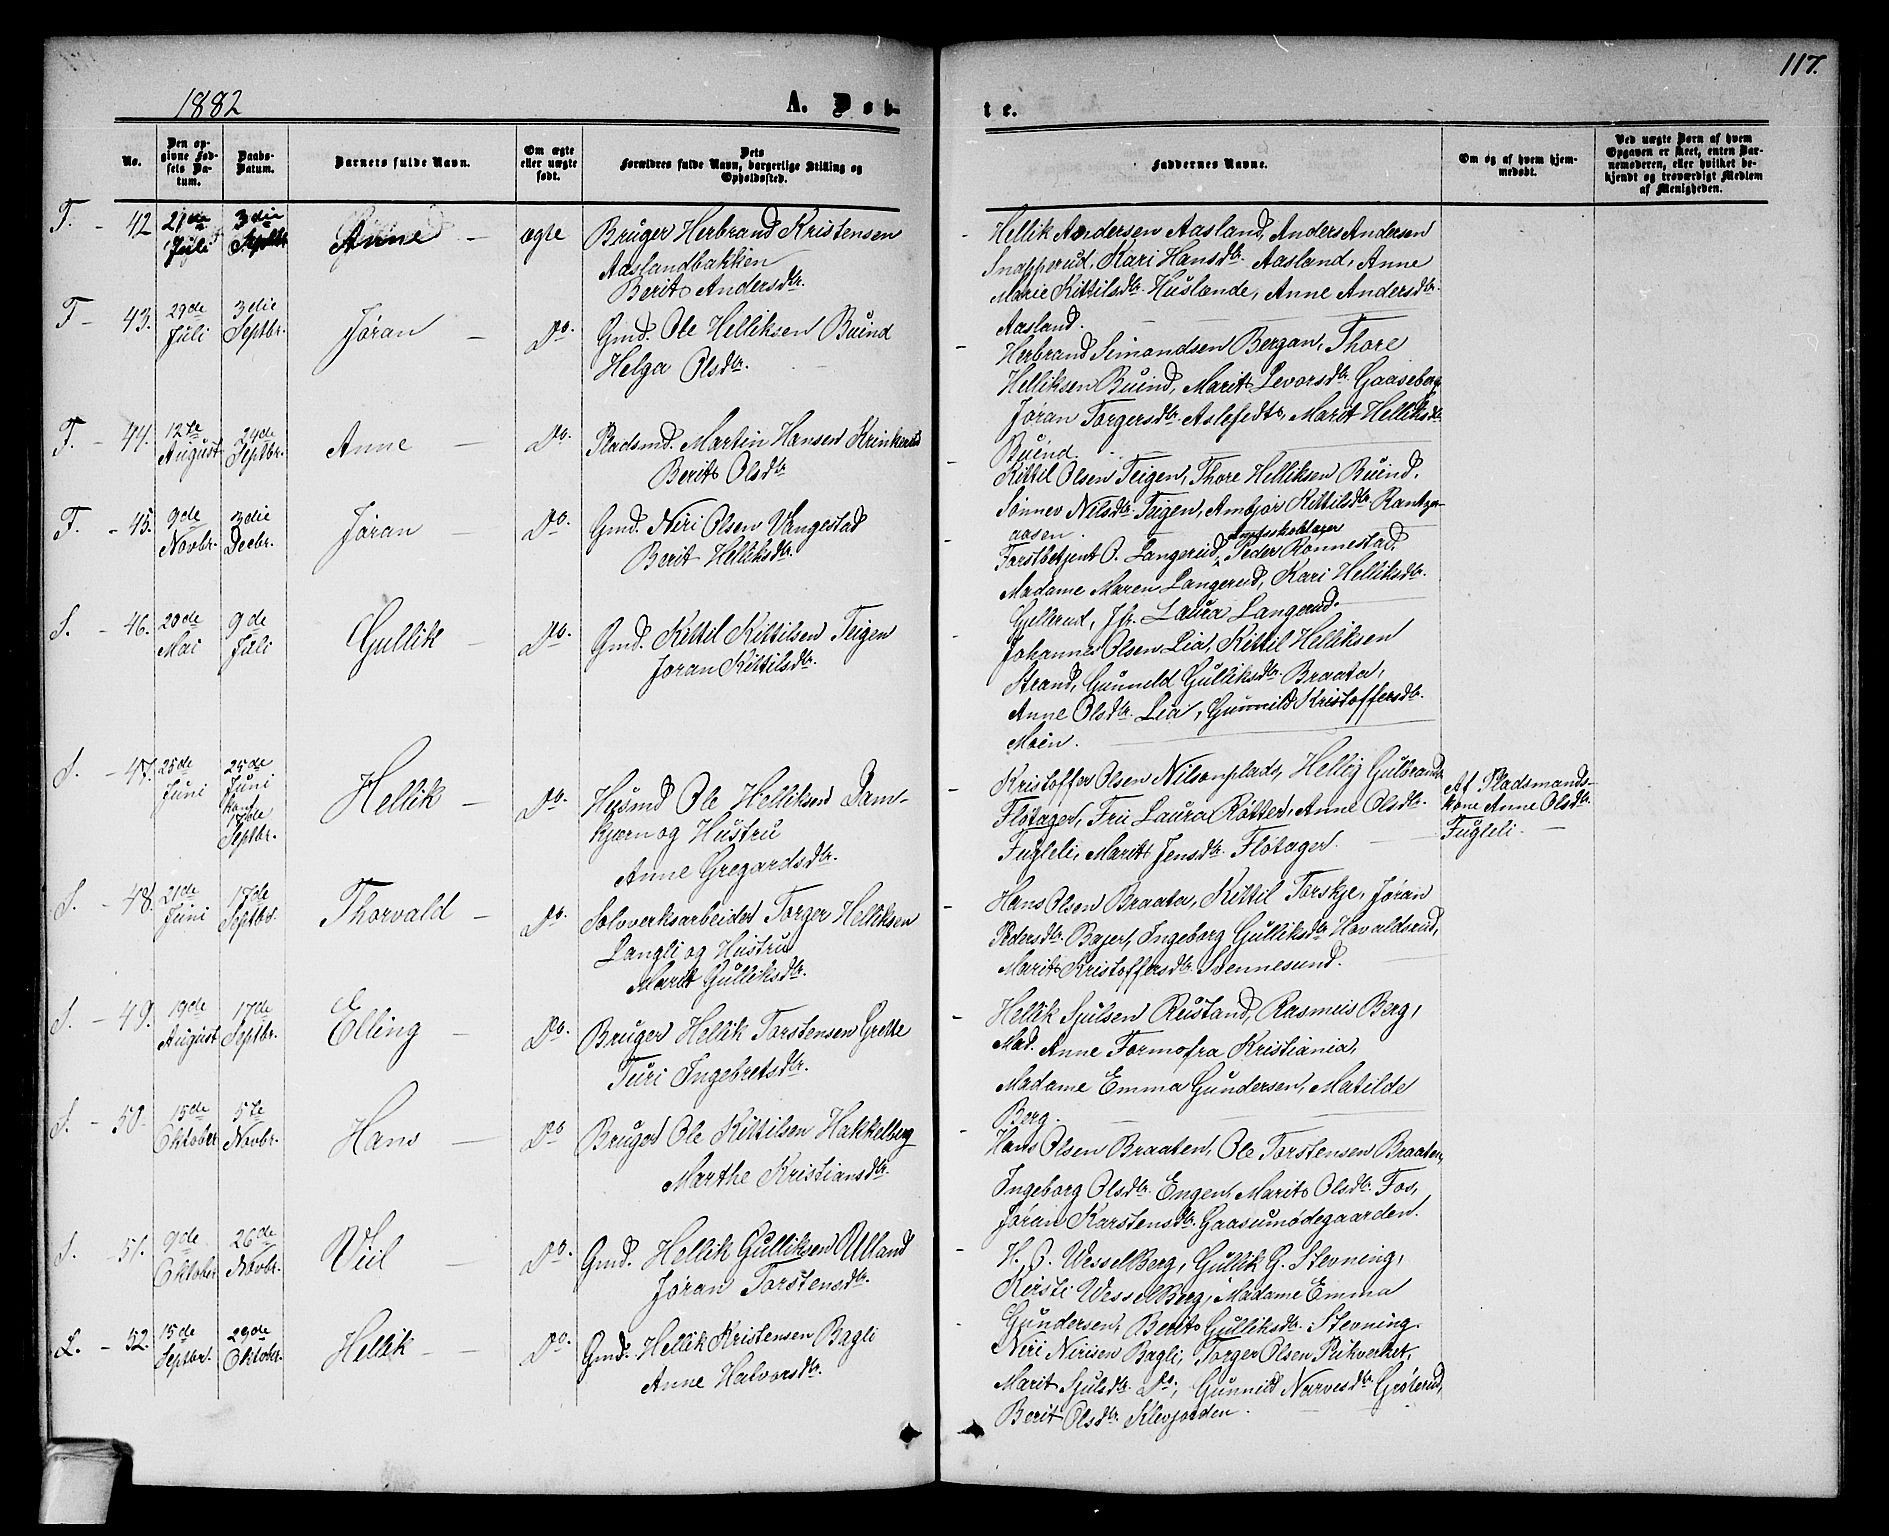 117.
1882
A. Døb-
te.
No.
Den op-
givne Fød-
sels Da-
tum.
Daabs-
Datum.
Barnets fulde Navn.
Om ægte
eller uægte
født.
Dets
Forældres fulde Navn, borgerlige Stilling og
Opholdssted.
Faddernes Navne.
Om og af hvem hjem-
medøbt.
Ved uægte Børn af hvem
Opgaven er skeet, enten Bar-
nemoderen, eller hvilket be-
kjendt og troværdigt Medlem
af Menigheden.
T. - 42 21de Juli 3die Septbr. Anne - ægte
Bruger Herbrand Kristensen
Aaslandbakken
Berit Andersdtr.
- Hellik Andersen Aasland, Anders Andersen
Snapperud, Kari Hansdtr. Aasland, Anne
Marie Kittilsdtr. Huslende, Anne Andersdtr.
Aasland.
T - 43. 29de Juli 3die Septbr. Jøran - Do.
Gmd. Ole Helliksen Buind
Helga Olsdtr.
- Herbrand Simondsen Bergan, Thore
Helliksen Buind, Marit Levorsdtr. Gaaseberg
Jøran Torgersdtr. Aslefedt, Marit Helliksdtr.
Buind.
T. - 44. 12te August 24de Septbr. Anne - Do.
Pladsmd. Martin Hansen Krinkerud
Berit Olsdtr
- Kittil Olsen Teigen, Thore Helliksen Buind.
Sønnev Nilsdtr. Teigen, Ambjør Kittilsdtr.
aasen.
T. - 45. 9de Novbr. 3die Decbr. Jøran - Do.
Gmd. Niri Olsen Vangestad
Berit Helliksdtr.
- Forstbetjent O. Langerud, Peder Rønnestad,
Madame Maren Langerud, Kari Helliksdtr.
Gellerud, Jfr. Laura Langerud.
S. - 46. 20de Mai 9de Juli Gullik - Do.
Gmd. Kittil Kittilsen Teigen
Jøran Kittilsdtr.
- Johannes Olsen Lia, Kittil Helliksen
Strand, Gunneld Gulliksdtr. Braata,
Anne Olsdtr. Lia, Gunnild Kristoffersdtr.
Moen.
S. - 47. 25de Juni 25de Juni
Konf
17de
Septbr. Hellik - Do.
Husmd Ole Helliksen Dam-
kjærn og Hustru
Anne Gregardsdtr.
- Kristoffer Olsen Nilsonplads, Hellig Gulbrand
Fløtager, Fru Laura Røtter, Anne Olsdtr.
Fugleli, Marit Jensdtr. Fløtager.
Af Pladsmands-
kone Anne Olsdtr.
Fugleli.
S. - 48. 21de Juni 17de Septbr. Thorvald - Do.
Solvverksarbeider Torger Helliksen
Langli og Hustru
Marit Gulliksdtr.
- Hans Olsen Braata, Kittil Torskje, Jøran
Pedersdtr. Bajer, Ingeborg Gulliksdtr. Havaldsrud,
Marit Kristoffersdtr. Stennesund.
S. - 49. 19de August 17de Septbr. Elling - Do.
Bruger Hellik Torstensen Grette
Turi Ingebretsdtr.
- Hellik Sjulsen Rustand, Rasmus Berg,
Mad. Anne Formo fra Kristiania,
Madame Emma Gundersen, Matilde
Berg.
S. - 50. 15de Oktober 5te Novbr. Hans - Do
Bruger Ole Kittilsen Hakkelberg
Marthe Kristiansdtr.
- Hans Olsen Braaten, Ole Torstensen Braaten,
Ingeborg Olsdtr. Engen, Marit Olsdtr. Fos,
Jøran Karstensdtr. Gaasumødegaarden.
S. - 51. 9de Oktober 26de Novbr. Viil - Do.
Gmd. Hellik Gulliksen Ulland
Jøran Torstensdtr.
- H. O. Wessel Berg, Gullik G. Stevning,
Kirsti Wessel Berg, Madame Emma
Gundersen, Berit Gulliksdtr. Stevning.
L. - 52. 15de Septbr. 29de Oktober. Hellik - Do.
Gmd. Hellik Kristensen Bagli
Anne Halvorsdtr.
- Niri Nirisen Bagli, Torger Olsen Pukverket,
Marit Sjulsdtr. Do, Gunnild Narvesdtr. Grøterud,
Berit Olsdtr. Klevjorden.